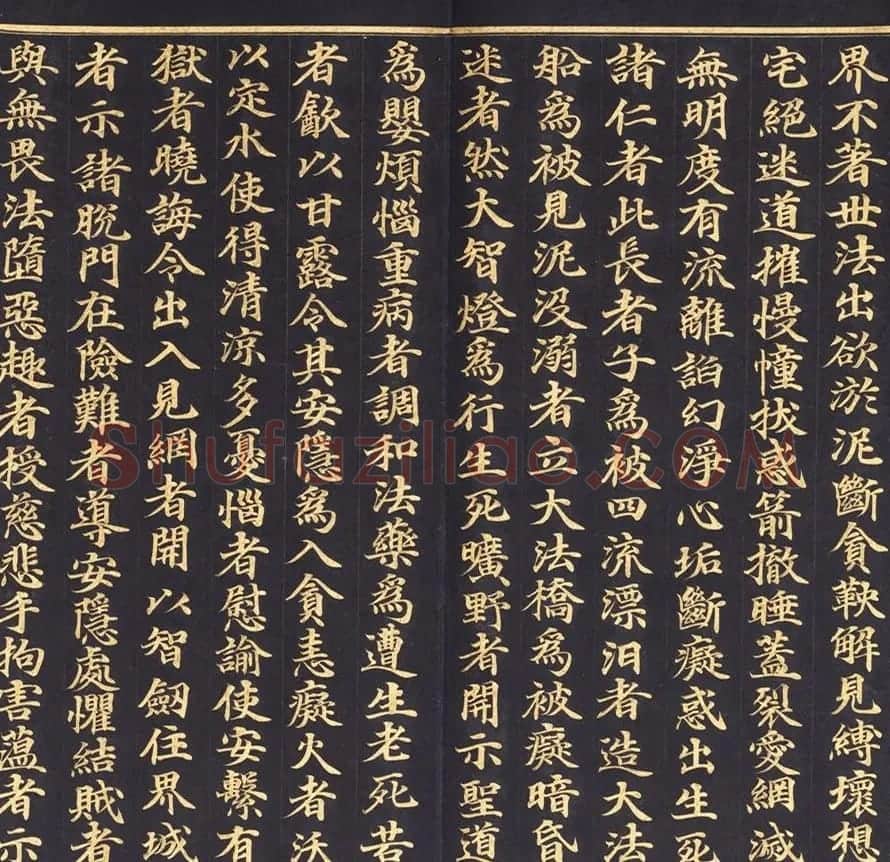 界不著世法出欲於泥斷貪鞅解見縛壞想
宅絕迷道摧慢幢拔惑箭撤睡蓋裂愛網滅
無明度有流離諂幻淨心垢斷癡惑出生死
諸仁者此長者子為被四流漂汩者造大法
船為被見泥沒溺者立大法橋為被癡暗昏
迷者然大智燈為行生死曠野者開示聖道
為嬰煩惱重病者調和法藥為遭生老死苦
者飲以甘露令其安隱為入貪恚癡火者沃
以定水使得清涼多憂惱者慰諭使安繫有
獄者曉誨令出入見網者開以智劒住界城
者示諸脫門在險難者導安隱處懼結賊者
與無畏法墮惡趣者授慈悲手拘害薀者示
Shufaziliao.COM